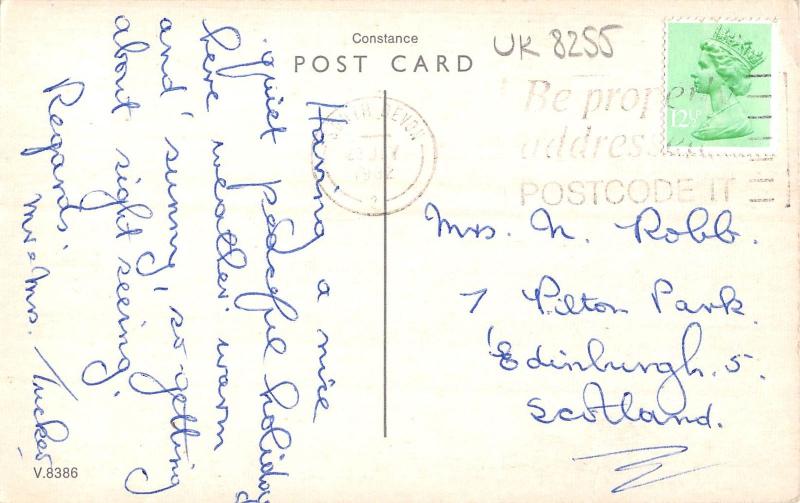 Constance
POST CARD
UK 8255
12½P
Be properly
addressed
POSTCODE IT
SOUTH DEVON
1982
Having a nice
quiet peaceful holiday
here weather warm
and sunny, so getting
about sight seeing.
Regards.
Mr & Mrs. Tucker
Mrs. N. Robb.
7 Pilton Park.
Edinburgh. 5.
Scotland.
V.8386